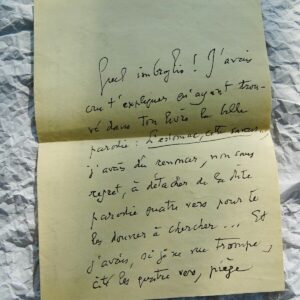 Quel imbroglio ! J'avais
cru t'expliquer qu'ayant trou-
vé dans ton livre la belle
parodie :
j'avais dû renoncer, non sans
regret, à détacher de la dite
parodie quatre vers pour te
les donner à chercher ... Et
j'avais, si je ne me trompe,
cité les quatre vers, piège